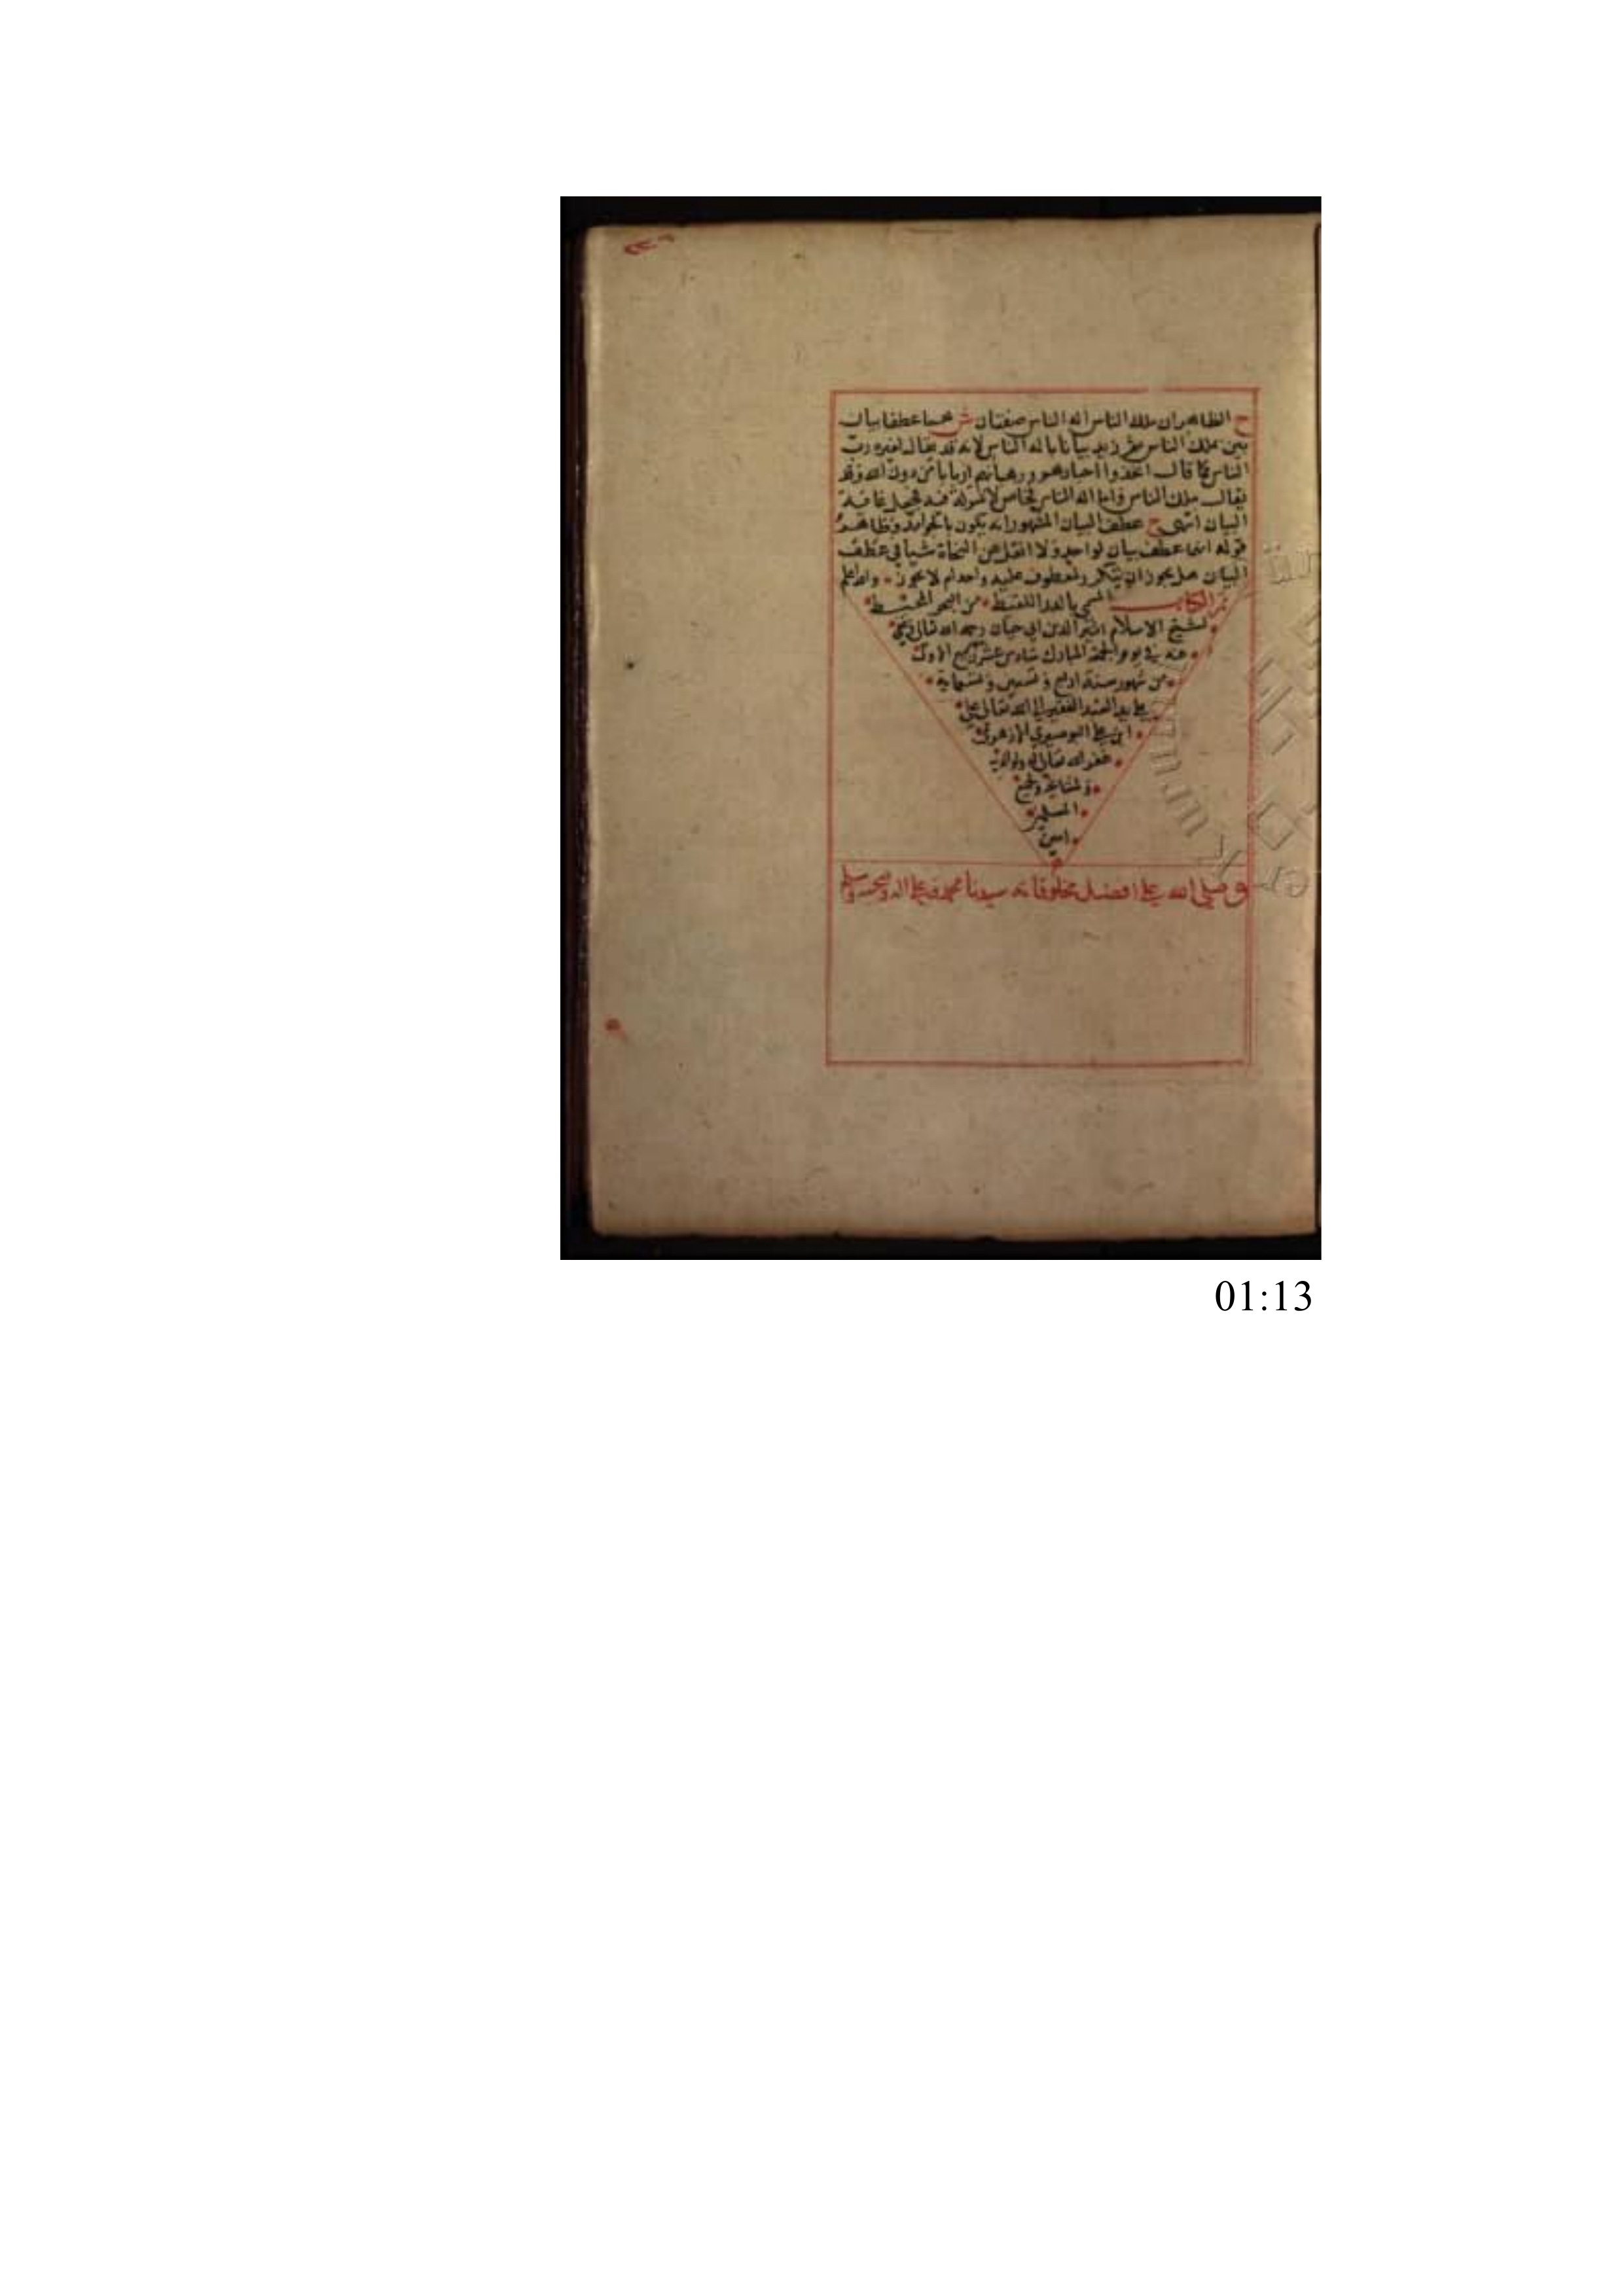 ح الظاهر ان ملك الناس اله الناس صفتان ش هما عطفا بيان
بين بملك الناس ثم زيد بيانا باله الناس لانه قد يقال لغيره رب
الناس كما قال اتخذوا احبارهم ورهبانهم اربابا من دون الله وقد
يقال ملك الناس واما اله الناس فخاص لا شركة فيه فجعل غاية
البيان انتهى ح عطف البيان المشهور انه يكون بالجوامد وظاهر
قوله انهما عطف بيان لواحد ولا انقل عن النحاة شيا في عطف
البيان هل يجوز ان يتكرر لمعطوف عليه واحد ام لا يجوز والله اعلم
تم الكتاب المسمى بالدر اللقيط من البحر المحيط
لشيخ الاسلام اثير الدين ابي حيان رحمه الله تعالى ورضي
عنه في يوم الجمعة المبارك سادس عشر ربيع الاول
من شهور سنة اربع و وتسعماية
على يد العبد الفقير الى الله تعالى علي
ابن علي البوصيري الازهري
غفر الله تعالى له ولوالديه
ولمشايخه ولجميع
المسلمين
امين
وصلى الله على افضل مخلوقاته سيدنا محمد وعلى اله وصحبه وسلم
01:13